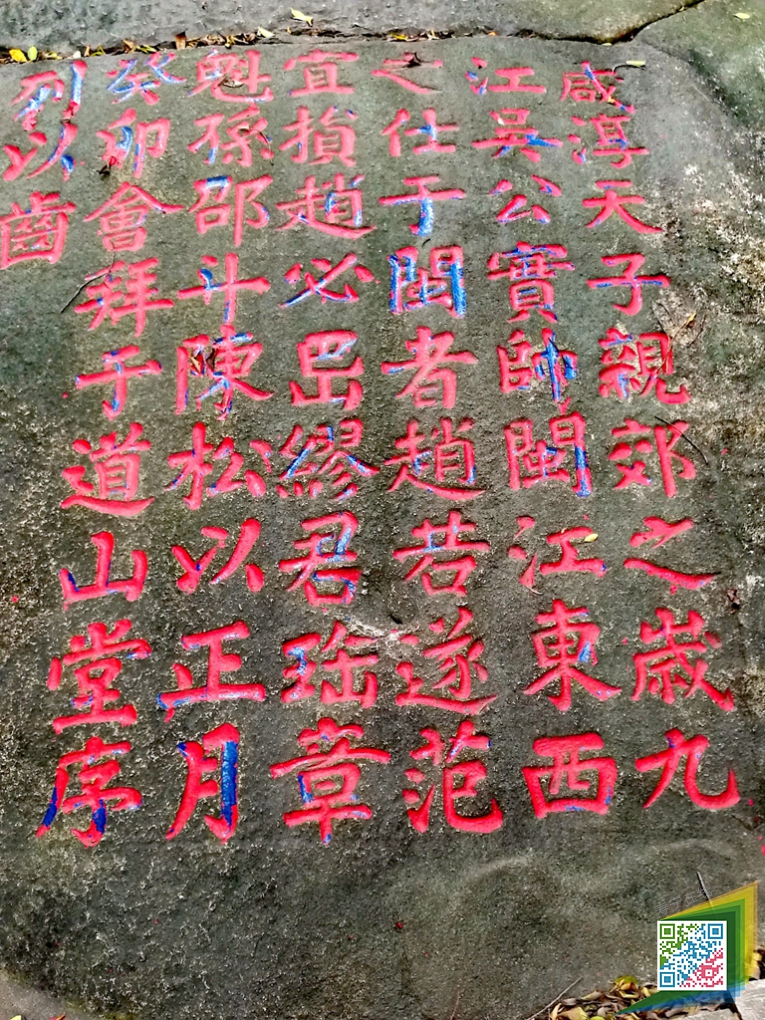 咸淳天子親郊之歲九
江吳公實帥閩江東西
之仕于閩者趙若遂范
宜損趙必岊繆君珤章
魁孫邵斗陳松以正月
癸卯會拜于道山堂序
列以齒